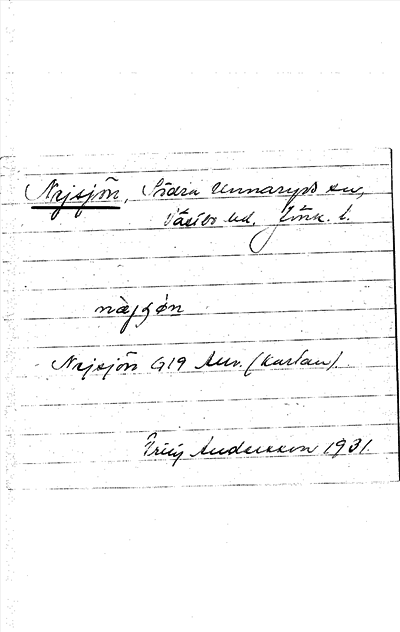 Nejsjön, Södra Unnaryds sn,
Västbo hd, Jönk. l.
Nejsjön G19 Anv. (Kartan).
Andersson 1931.